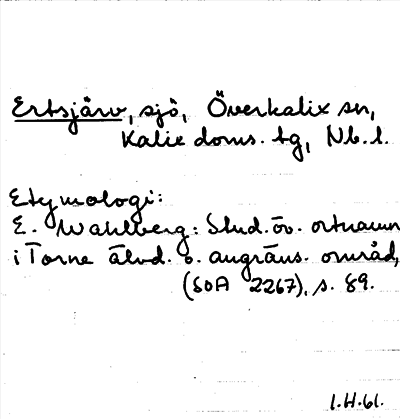 Ertsjärv, sjö, Överkalix sn,
Kalix doms. tg, Nb. l.
Etymologi:
E. Wahlberg: Stud. öv. ortnamn
i Torne älvd. o. angräns. område,
(SOA 2267), s. 89.
1.H.61.